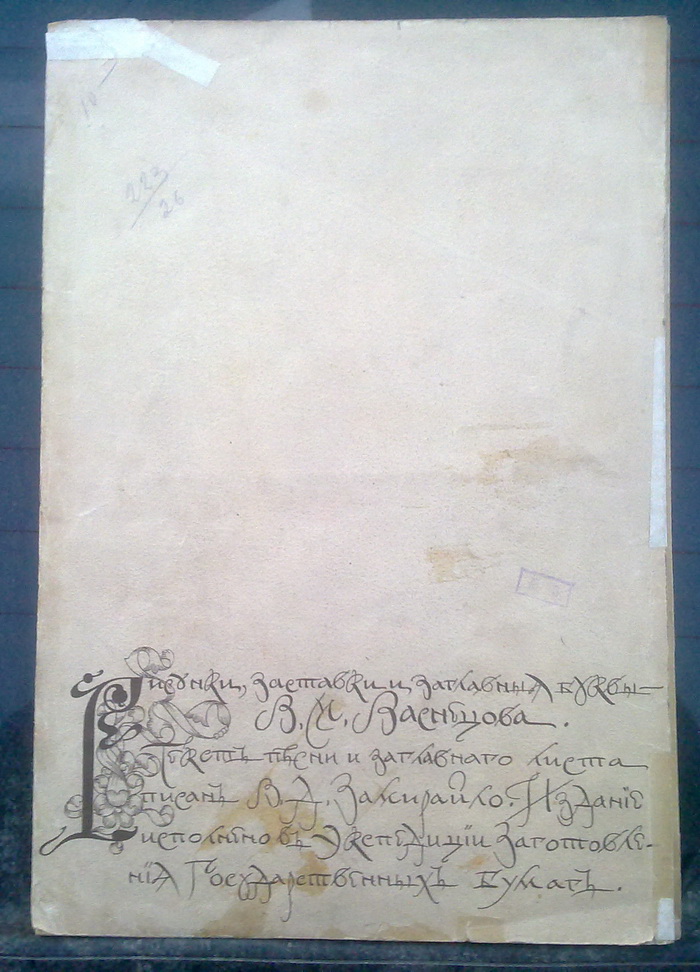 10
223/26
Рисунки, заставки и заглавныя буквы
В. М. Васнецова.
Текстъ пѣсни и заглавнаго листа
писанъ В. Д. Замирайло. Изданіе
исполнено въ Экспедиціи Заготовле-
нія Государственныхъ Бумагъ.